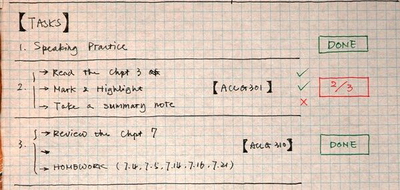 【TASKS】
1. Speaking Practice DONE
→ Read the Chpt 3 ✓
2. → Mark & Highlight 【ACCG301】 ✓ 2/3
→ Take a summary note ✗
→ Review the Chpt 7
3. → 【ACCG 310】 DONE
→ HOMEWORK (7.4, 7.5, 7.14, 7.16, 7.21)